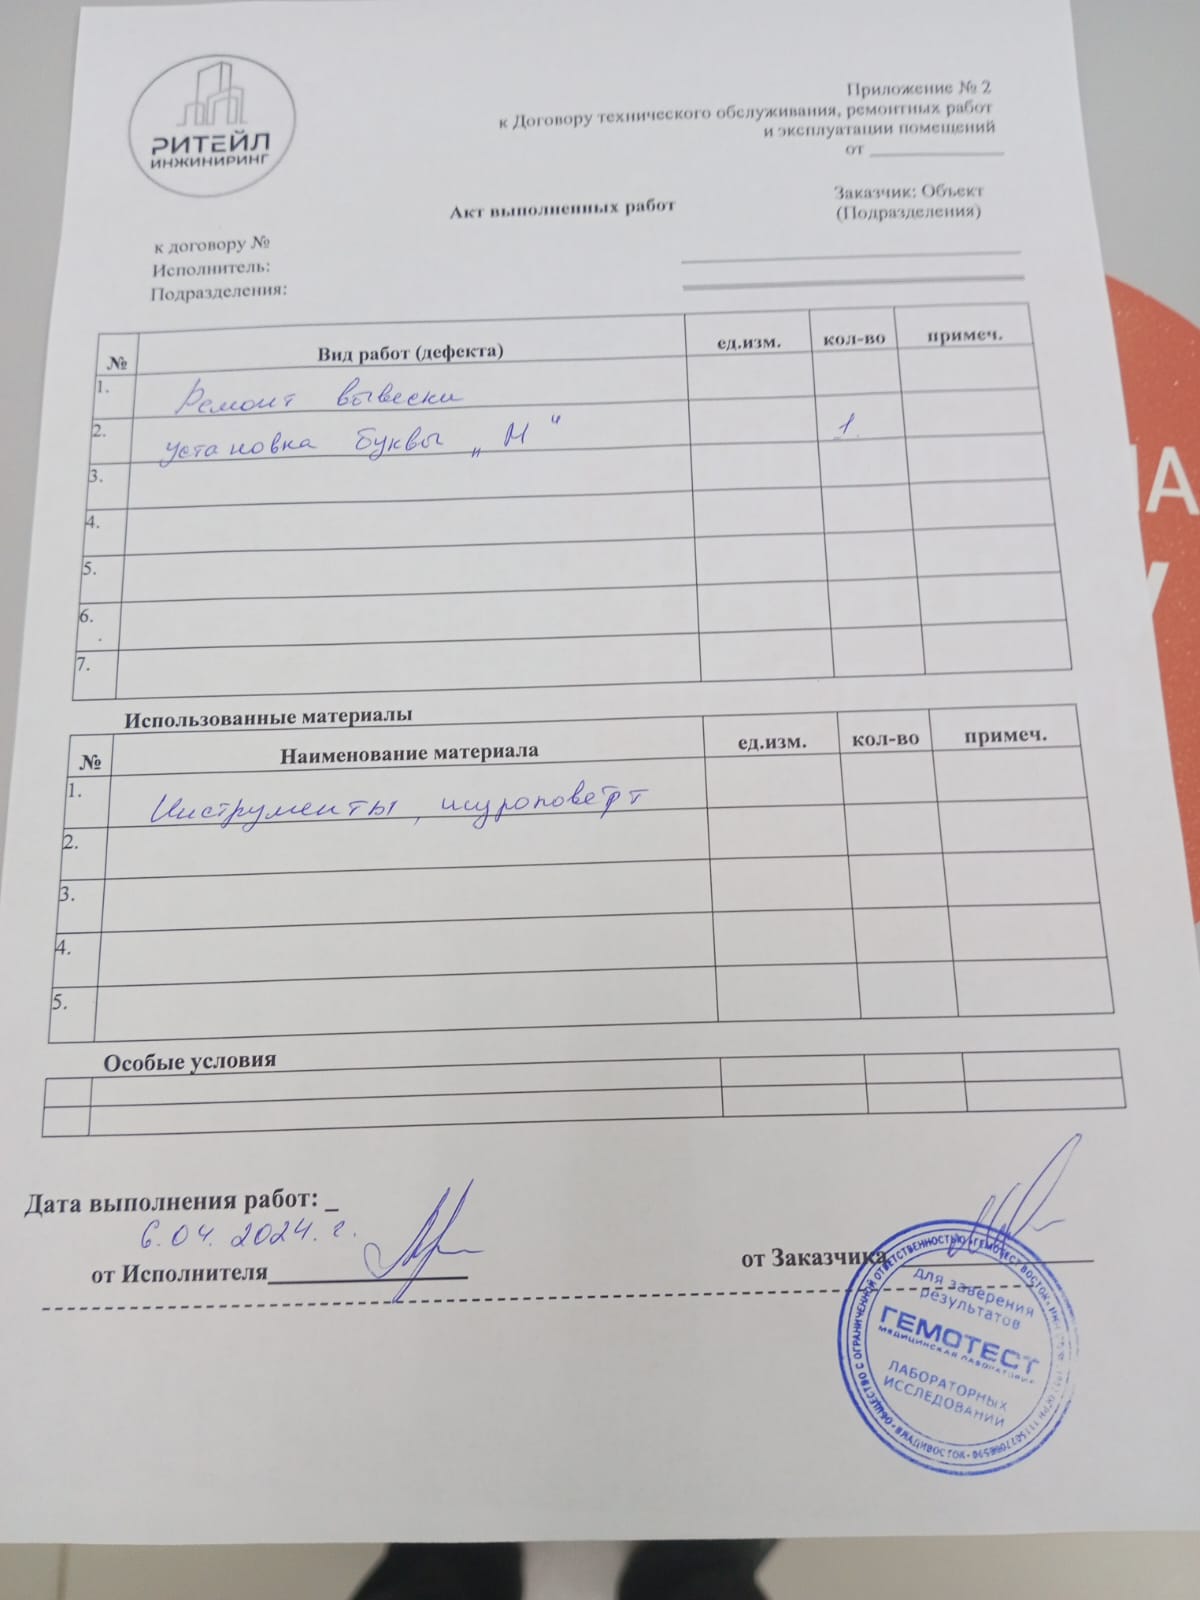 РИТЕЙЛ
ИНЖИНИРИНГ
Приложение № 2
к Договору технического обслуживания, ремонтных работ
и эксплуатации помещений
от
Заказчик: Объект
(Подразделения)
Акт выполненных работ
к договору №
Исполнитель:
Подразделения:
№ Вид работ (дефекта) ед.изм. кол-во примеч.
1. Ремонт вывески
2. установка буквы „М" 1
3.
4.
5.
6.
7.
Использованные материалы
№ Наименование материала ед.изм. кол-во примеч.
1. Инструменты, шуроповёрт
2.
3.
4.
5.
Особые условия
Дата выполнения работ: _
6.04.2024. г.
от Исполнителя
от Заказчика
ОБЩЕСТВО С ОГРАНИЧЕННОЙ ОТВЕТСТВЕННОСТЬЮ «ГЕМОТЕСТ ВОСТОК»
для заверения
результатов
ГЕМОТЕСТ
МЕДИЦИНСКАЯ ЛАБОРАТОРИЯ
ЛАБОРАТОРНЫХ
ИССЛЕДОВАНИЙ
ВЛАДИВОСТОК